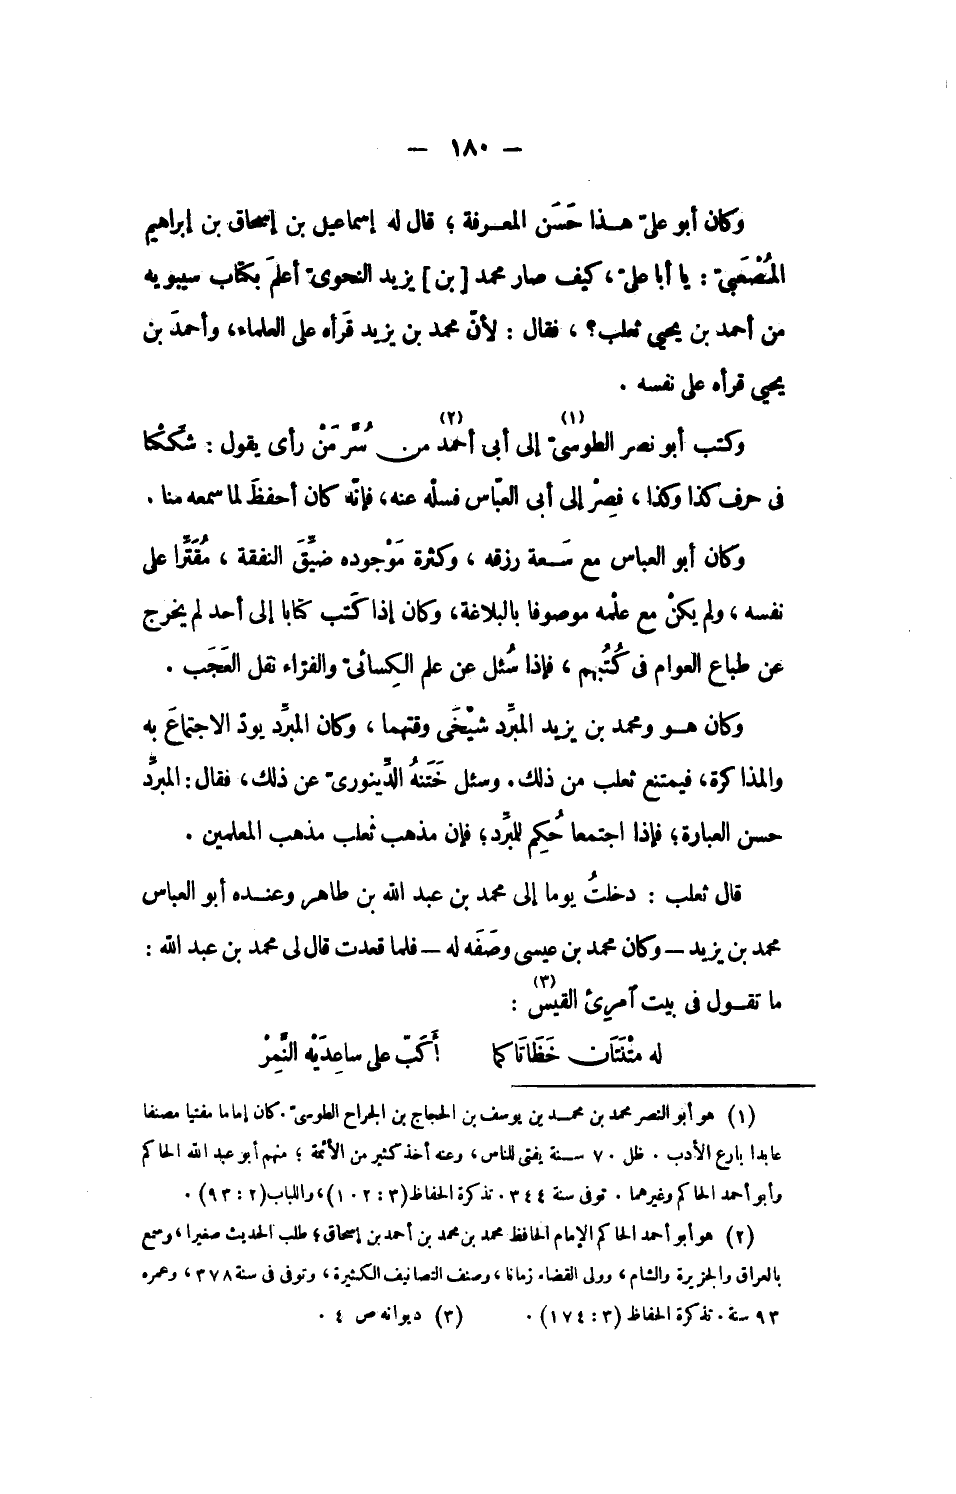 — ١٨٠ —
وكان أبو علىّ هــذا حَسَن المعــرفة ؛ قال له إسماعيل بن إسحاق بن إبراهيم
المُصْعَبىّ : يا أبا علىّ ، كيف صار محمد [ بن ] يزيد النحوىّ أعلمَ بكتاب سيبويه
من أحمد بن يحيى ثعلب؟ ، فقال : لأنّ محمد بن يزيد قَرأه على العلماء، وأحمدَ بن
يحيى قرأه على نفسه .
وكتب أبو نصر الطوسىّ (١) إلى أبى أحمد (٢) من سُرَّ مَنْ رأى يقول : شكَكْنا
فى حرف كذا وكذا ، فصِرْ إلى أبى العبّاس فسلْه عنه، فإنّه كان أحفظَ لما سمعه منا .
وكان أبو العباس مع سَــعة رزقه ، وكثرة مَوْجوده ضيِّقَ النفقة ، مُقَتِّرا على
نفسه ، ولم يكنْ مع علْمه موصوفا بالبلاغة، وكان إذا كَتب كتابا إلى أحد لم يخرج
عن طباع العوام فى كُتُبهم ، فإذا سُئل عن علم الكِسائىّ والفرّاء نقل العَجَب .
وكان هــو ومحمد بن يزيد المبرِّد شيْخَى وقتهما ، وكان المبرِّد يودّ الاجتماعَ به
والمذاكرة، فيمتنع ثعلب من ذلك. وسئل خَتَنهُ الدِّينورىّ عن ذلك، فقال: المبرِّد
حسن العبارة؛ فإذا اجتمعا حُكِم للمبرِّد؛ فإن مذهب ثعلب مذهب المعلمين .
قال ثعلب : دخلتُ يوما إلى محمد بن عبد الله بن طاهر وعنــده أبو العباس
محمد بن يزيد — وكان محمد بن عيسى وصَفَه له — فلما قعدت قال لى محمد بن عبد الله :
ما تقــول فى بيت آمرئ القيس (٣) :
له متْنَتَان خَظَاتَا كما أَكَبّ على ساعِدَيْه النَّمِرْ
(١) هو أبو النصر محمد بن محمــد بن يوسف بن الحجاج بن الجراح الطوسىّ . كان إماما مفتيا مصنفا
عابدا بارع الأدب . ظل ٧٠ ســنة يفتى للناس، وعنه أخذ كثير من الأئمة ؛ منهم أبو عبد الله الحاكم
وأبو أحمد الحاكم وغيرهما . توفى سنة ٣٤٤ . تذكرة الحفاظ (٣ : ١٠٢)، واللباب (٢ : ٩٣) .
(٢) هو أبو أحمد الحاكم الإمام الحافظ محمد بن محمد بن أحمد بن إسحاق ؛ طلب الحديث صغيرا ، وسمع
بالعراق والجزيرة والشام ، وولى القضاء زمانا ، وصنف التصانيف الكثيرة ، وتوفى فى سنة ٣٧٨ ، وعمره
٩٣ سنة . تذكرة الحفاظ (٣ : ١٧٤) . (٣) ديوانه ص ٤ .